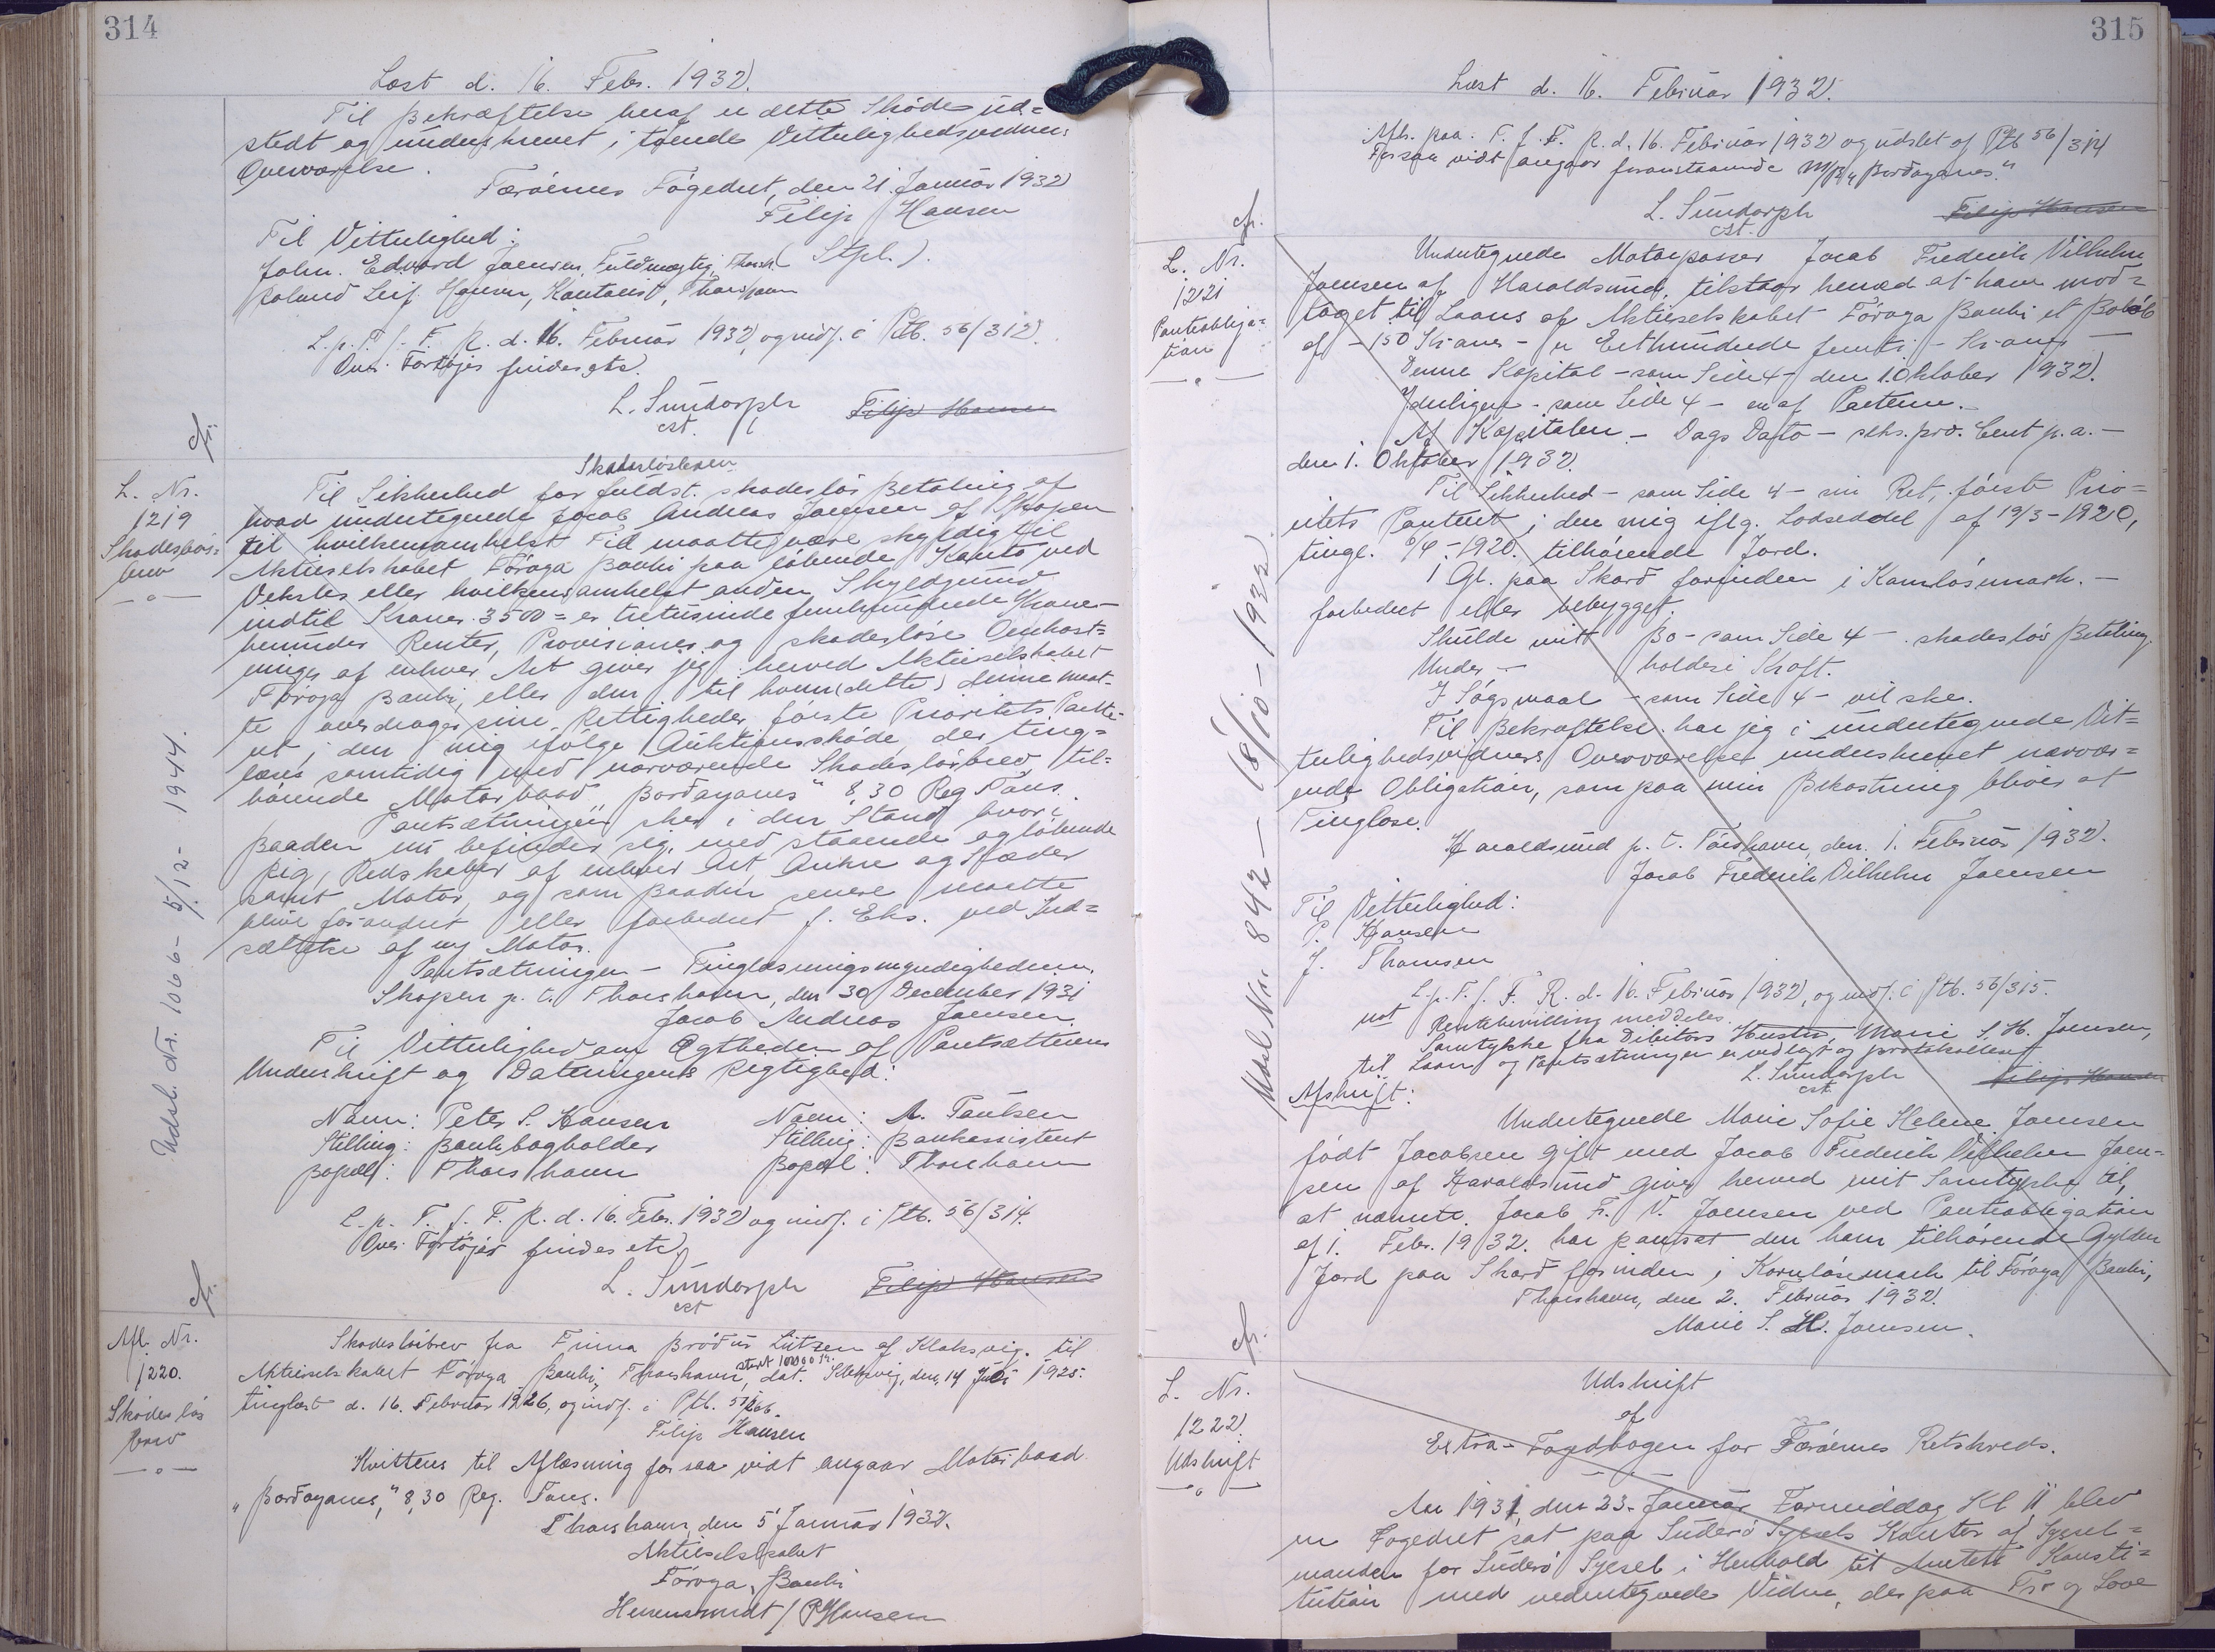 314
Læst d. 16. Febr. 1932.
Til Bekræftelse heraf er dette Skøde ud=
stedt og underskrevet i tvende Vitterlighedsvidners
Overværelse.
Færøernes Fogedret, den 21. Januar 1932
Filip Hansen
Til Vitterlighed:
( Stpl. ).
John. Edvard Joensen, Fuldmægtig, Thorsh.
Roland Leif Hansen, Kontorist, Thorshavn
L. p. T. f. F. R. d. 16. Februar 1932, og indf. i Ptb. 56/312.
Over Fartøjer findes etc.
L. Sundorph
cst.
Filip Hansen
cfr.
L. Nr.
1219
Skadesløs=
brev
Skadesløsbrev
Til Sikkerhed for fuldst. skadesløs Betaling af
hvad undertegnede Jacob Andreas Joensen af Skopen
til hvilkensomhelst Tid maatte være skyldig til
Aktieselskabet Føroya Banki paa løbende Konto, ved
Veksler eller hvilkensomhelst anden Skyldgrund
indtil Kroner 3500 = er tretusinde femhundrede Kroner -
herunder Renter, Provisioner og skadesløse Omkost=
ninger af enhver Art giver jeg herved Aktieselskabet
Føroya Banki, eller den, til hvem (dette) denne maat-
te overdrage sine Rettigheder første Prioritets Pante-
ret i den mig ifølge Auktionsskøde, der ting=
læses samtidig med nærværende Skadesløsbrev til=
hørende Motorbaad "Bordoyanes" 8,30 Reg Tons.
Pantsætningen sker i den Stand hvori
Baaden nu befinder sig, med staaende og løbende
Rig, Redskaber af enhver Art, Ankre og Kæder
samt Motor, og som Baaden senere maatte
blive forandret eller forbedret f. Eks. ved Ind=
sættelse af ny Motor.
Pantsætningen - Tinglæsningsmyndighederne.
Skopen p. t. Thorshavn, den 30 December 1931
Jacob Andreas Joensen.
Til Vitterlighed om Ægtheden af Pantsætterens
Underskrift og Dateringens Rigtighed:
Navn: Peter S. Hansen Navn: A. Paulsen
Stilling: Bankbogholder Stilling: Bankassistent
Bopæl: Thorshavn Bopæl: Thorshavn
L. p. T. f. F. R. d. 16. Febr. 1932 og indf. i Ptb. 56/314.
Over Fartøjer findes etc.
L. Sundorph
cst
Filip Hansen
Udsl. Nr. 1066 - 5/12 - 1944.
cfr.
Afl. Nr.
1220.
Skadesløs
brev
Skadesløsbrev fra Firma Brødur Lützen af Klaksvig til
Aktieselskabet Føroya Banki, Thorshavn, stort 10000 Kr. dat. Klaksvig, den 14 Juli 1925.
tinglæst d. 16. Februar 1926, og indf. i Ptb.
Filip Hansen
Kvitteres til Aflæsning for saa vidt angaar Motorbaad
"Bordoyanes," 8,30 Reg. Tons.
Thorshavn, den 5 Januar 1932.
Aktieselskabet
Føroya Banki
/ P Hansen
315
Læst d. 16. Februar 1932.
Afl. paa T. f. F. R. d. 16. Februar 1932 og udslet af Ptb 56/314
For saa vidt angaar foranstaaende M/B "Bordoyanes."
L. Sundorph
cst.
Filip Hansen
cfr.
L. Nr.
1221
Panteobliga=
tion
Undertegnede Motorpasser Jacob Frederik Vilhelm
Joensen af Haraldsund, tilstaar herved at have mod=
taget til Laans af Aktieselskabet Føroya Banki et Beløb
af - 150 Kroner - er Eethundrede femti - Kroner -
Denne Kapital - som Side 4 - den 1. Oktober 1932.
Yderligere - som Side 4 - en af Parterne. -
Af Kapitalen - Dags Dato - seks pro. Cent p. a. -
den 1. Oktober 1932.
Til Sikkerhed - som Side 4 - min Ret, første Prio=
ritets Panteret i den mig iflg. Lodseddel af 19/3 - 1920,
tingl. 6/4 - 1920. tilhørende Jord.
1 Gl. paa Skard forinden i Kornløsmark. -
forbedret eller bebygget.
Skulde mitt Bo - som Side 4 - skadesløs Betaling.
Under - holdes i Kraft.
I Søgsmaal - som Side 4 - vil ske.
Til Bekræftelse har jeg i undertegnede Vit=
terlighedsvidners Overværelse underskrevet nærvær=
ende Obligation, som paa min Bekostning bliver at
Tinglæse.
Haraldsund p. t. Tórshavn, den 1. Februar 1932.
Jacob Frederik Vilhelm Joensen
Til Vitterlighed:
P. Hansen
J. Thomsen
L. p. T. f. F. R. d. 16. Februar 1932, og indf. i Ptb. 56/315.
not Rentebevilling meddeles.
Samtykke fra Debitors Hustru, Marie S. H. Joensen,
til Laan og Pantsætningen er vedlagt og protokolleret
L. Sundorph
cst
Filip Hansen
Afskrift:
Undertegnede Marie Sofie Helene Joensen
født Jacobsen gift med Jacob Frederik Vilhelm Joen-
sen af Haraldsund giver herved mit Samtykke til,
at nævnte Jacob Fr. V. Joensen ved Panteobligation
af 1. Febr. 1932. har pantsat den ham tilhørende Gylden
Jord paa Skard forinden i Kornløsmark til Føroya Banki,
Thorshavn, den 2. Februar 1932.
Marie S. H. Joensen.
Udsl. Nr. 842 - 18/10 - 1932
cfr.
L. Nr.
1222.
Udskrift
Udskrift
af
Extra - Fogdbogen for Færøernes Retskreds.
Aar 1931, den 23. Januar Formiddag Kl. 11 blev
en Fogedret sat paa Suderø Syssels Kontor af Syssel=
manden for Suderø Syssel i Henhold til Amtets Konsti=
tution med vedertegnede Vidne, der paa Tro og Love